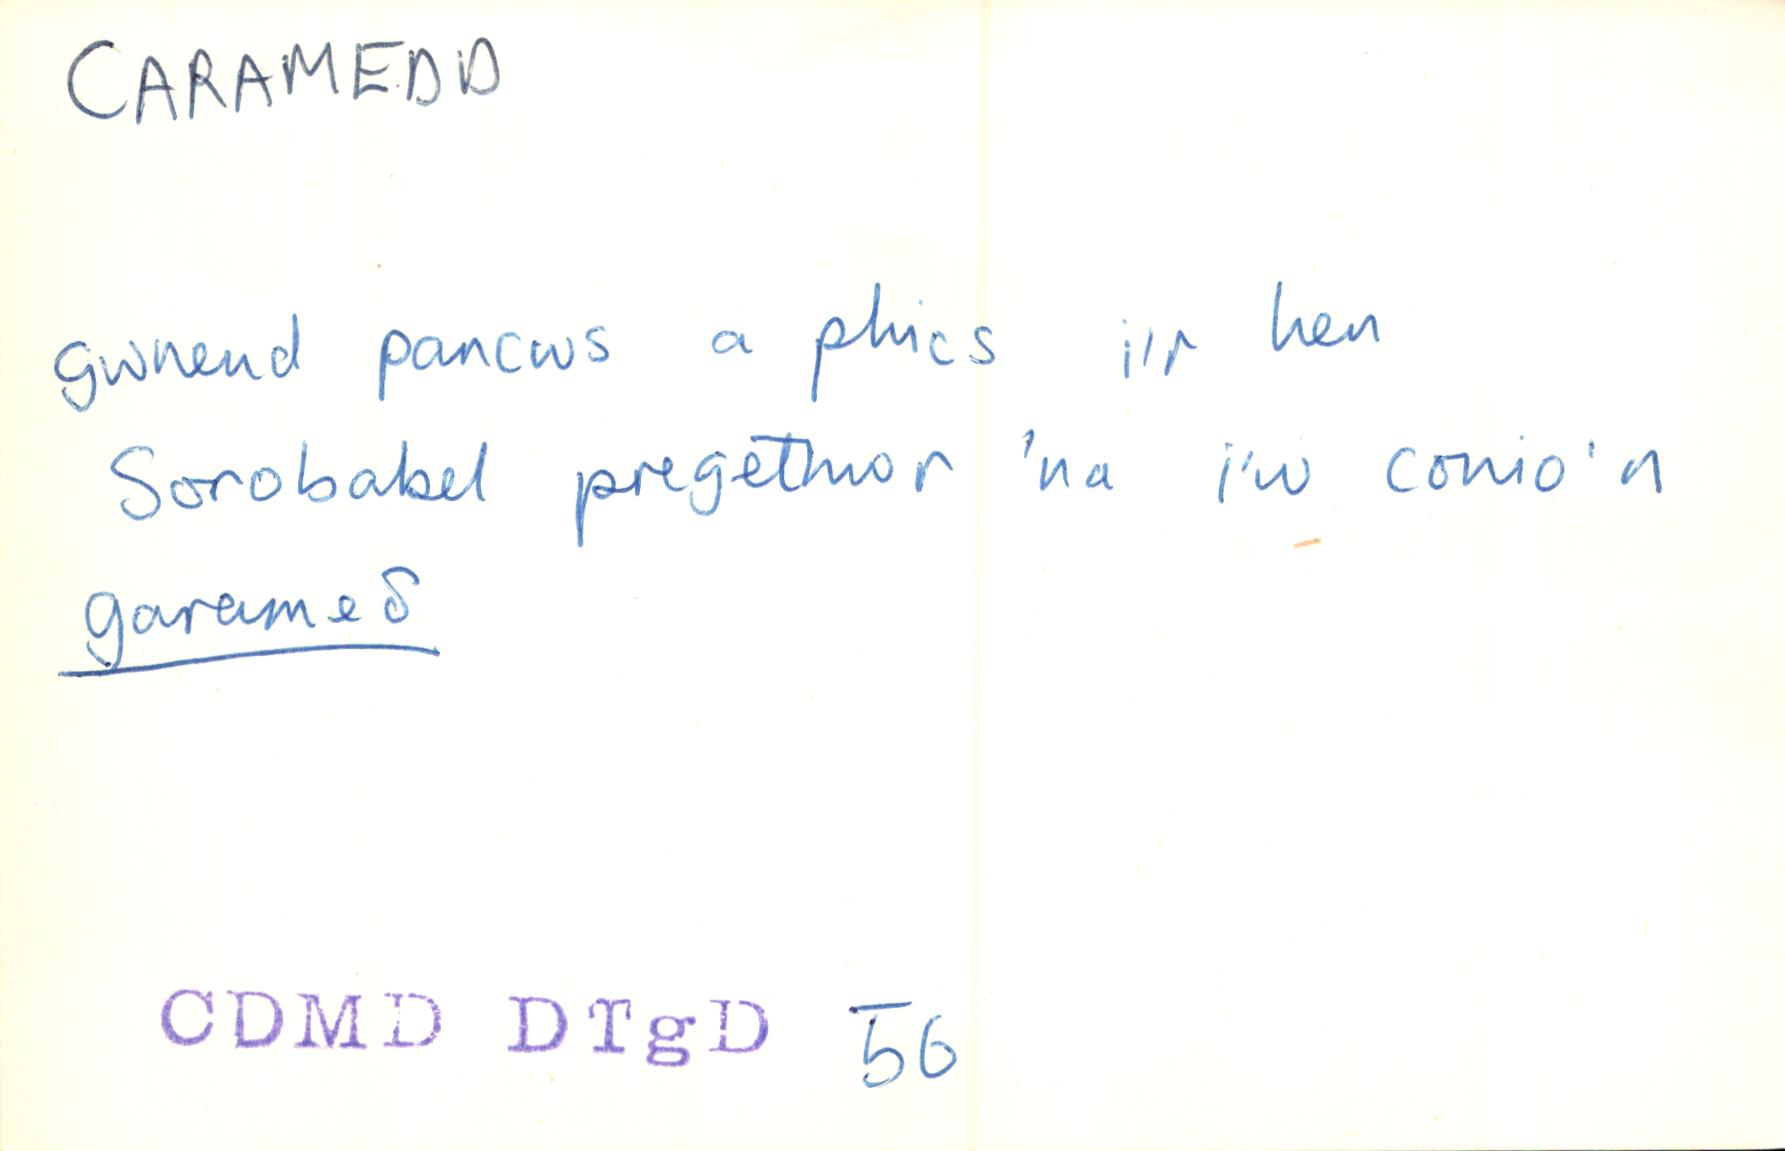 CARAMEDD
gwneud pancws a phics i'r hen
Sorobabel pregethwr 'na i'w conio'n
garameδ
CDMD DTgD 56